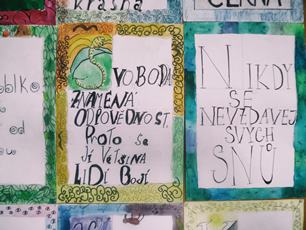 krásná
ČERNÁ
oblko
od
SVOBODA
ZNAMENÁ
ODPOVĚDNOST.
PROTO SE
JÍ VĚTŠINA
LIDÍ BOJÍ
NIKDY
SE
NEVZDÁVEJ
SVÝCH
SNŮ